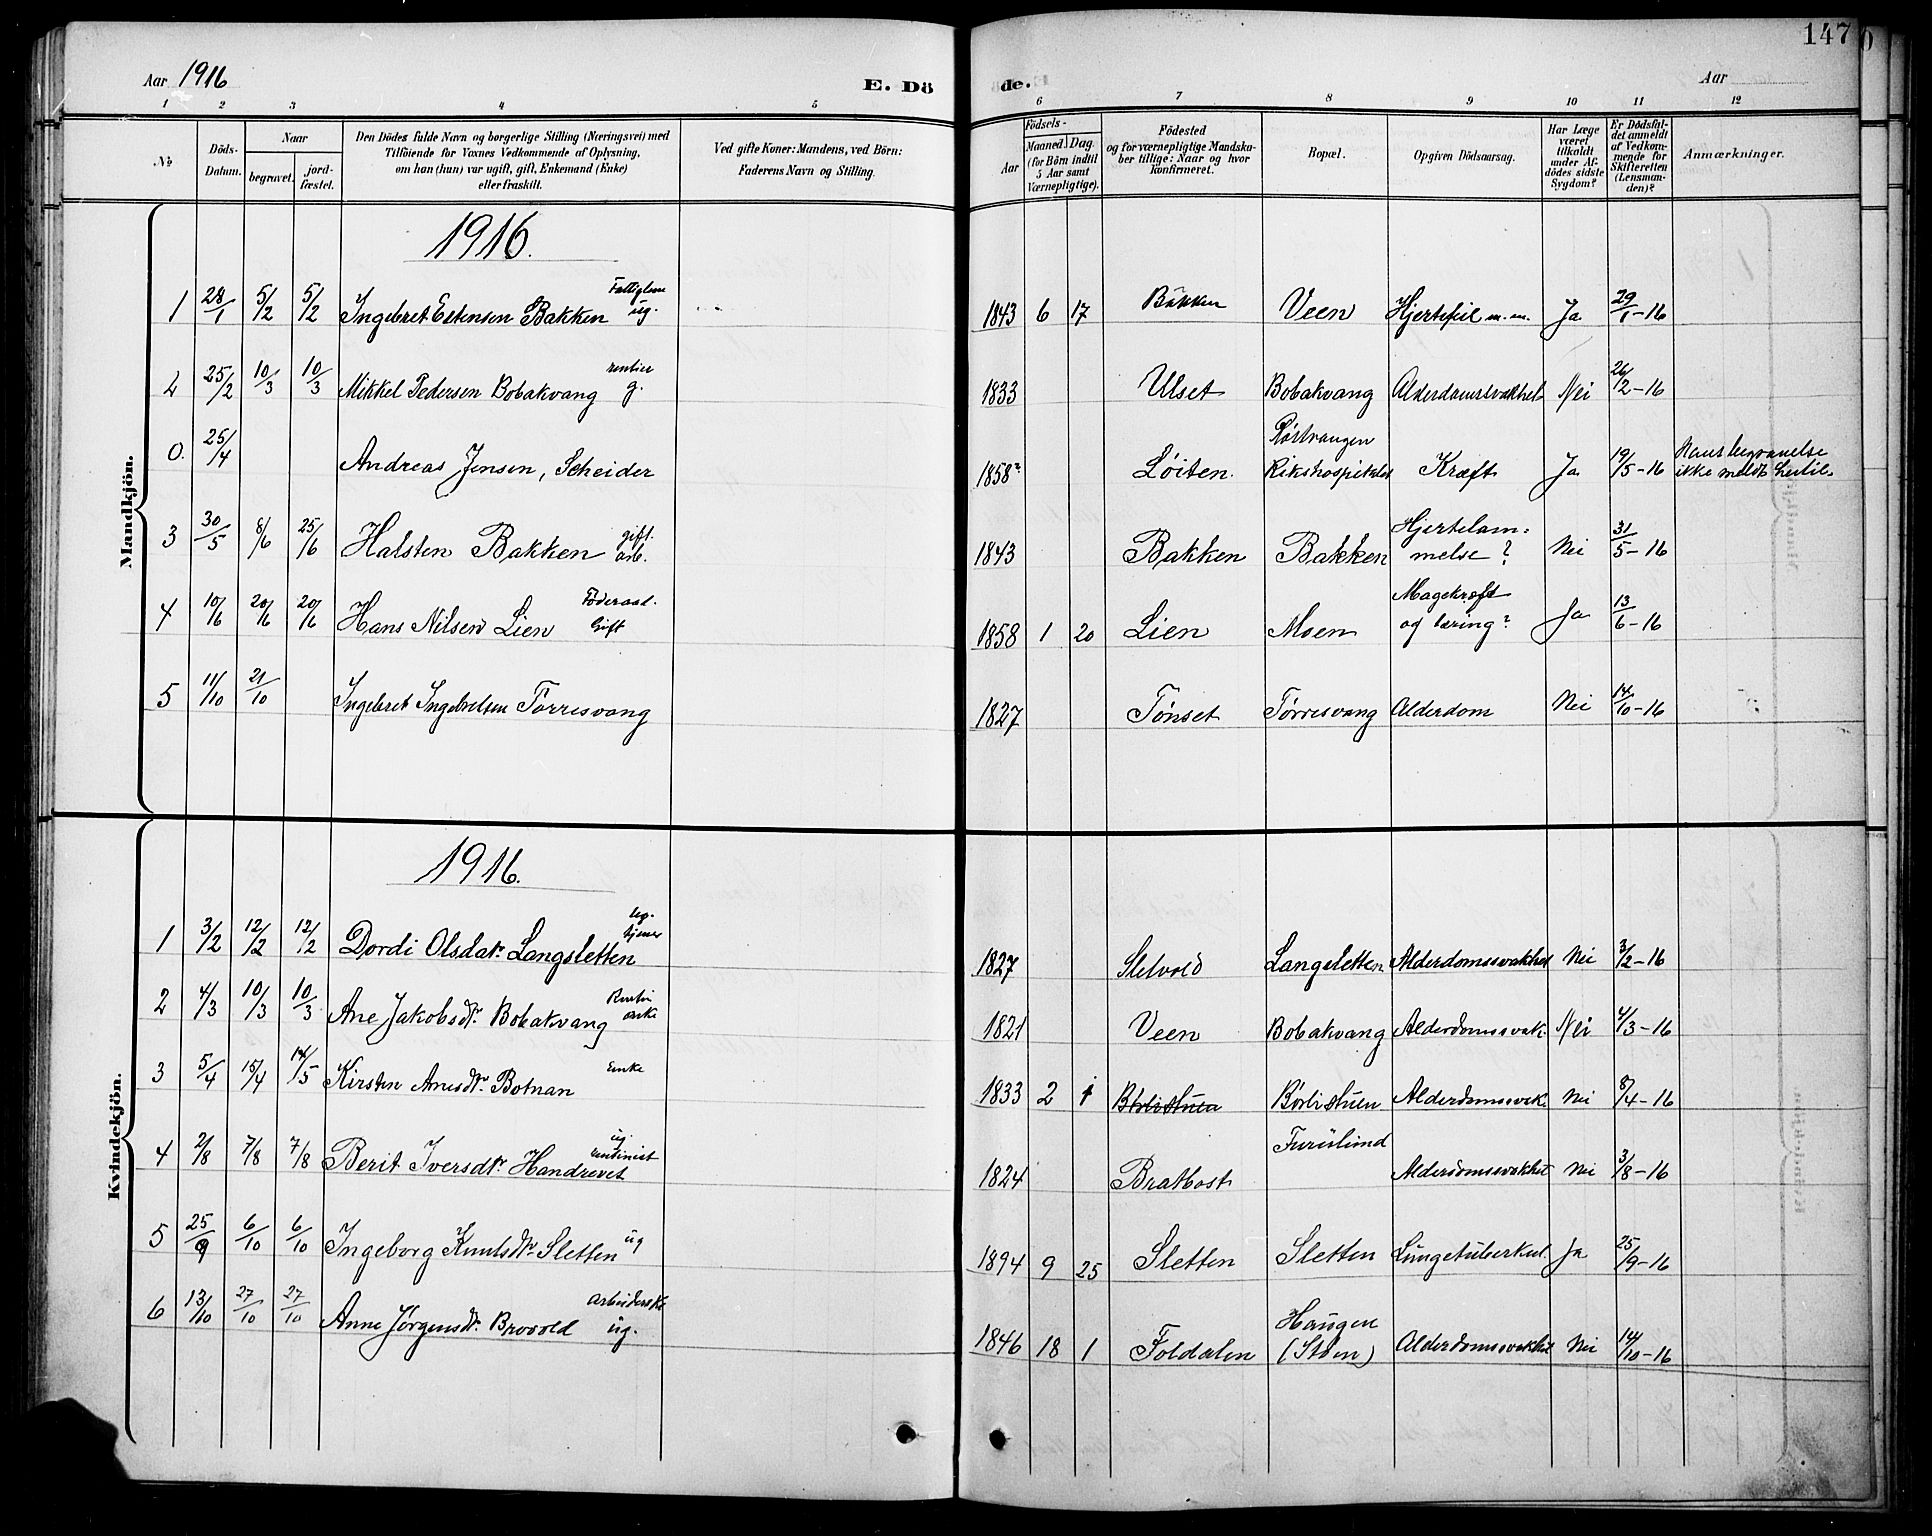 147
Aar 1916
E. Dö
de.
Aar
1 2 3 4 5 6 7 8 9 10 11 12
No
Döds-
Datum.
Naar
begravet.
jord-
fæstet.
Den Dödes fulde Navn og borgerlige Stilling (Næringsvei) med
Tilföiende for Voxnes Vedkommende af Oplysning,
om han (hun) var ugift, gift, Enkemand (Enke)
eller fraskilt.
Ved gifte Koner: Mandens, ved Börn:
Faderens Navn og Stilling.
Födsels-
Aar
Maaned. Dag.
(for Börn indtil
5 Aar samt
Værnepligtige).
Födested
og for værnepligtige Mandska-
ber tillige: Naar og hvor
konfirmeret.
Bopæl.
Opgiven Dödsaarsag.
Har Læge
været
tilkaldt
under Af-
dödes sidste
Sygdom?
Er Dödsfal-
det anmeldt
af Vedkom-
mende for
Skifteretten
(Lensman-
den)?
Anmærkninger.
Mandkjön.
1916.
1 28/1 5/2 5/2 Ingebret Estensen Bakken ug. 1843 6 17 Bakken Veen Hjertefeil m.m. Ja 29/1-16
2 25/2 10/3 10/3 Mikkel Pedersen Bobakvang rentier g. 1833 Ulset Bobakvang Alderdomssvakhet Nei 26/2-16
0. 25/4 Andreas Jensen, Scheider 1858? Løiten. Røstvangen
Rikshospitalet Kræft Ja 19/5-16 Hans begravelse
ikke meldt hertil.
3 30/5 8/6 25/6 Halsten Bakken gift. arb. 1843 Bakken Bakken Hjertelam-
melse? Nei 31/5-16
4 10/6 20/6 20/6 Hans Nilsen Lien Føderaad. Gift 1858 1 20 Lien Moen Magekræft
og tæring? Ja 13/6-16
5 11/10 21/10 Ingebret Ingebretsen Tørresvang 1827 Tønset Tørresvang Alderdom Nei 14/10-16
Kvindekjön.
1916.
1 3/2 12/2 12/2 Dordi Olsdatr Langsletten ug. tjener 1827 Sletvold Langsletten Alderdomssvakhet Nei 3/2-16
2 4/3 10/3 10/3 Ane Jakobsdtr. Bobakvang enke 1821 Veen Bobakvang Alderdomssvak. Nei 4/3-16
3 5/4 15/4 14/5 Kirsten Arnesdtr Botnan Enke 1833 2 1 Børlistuen Børlistuen Alderdomssvek. Nei 8/4-16
4 2/8 7/8 7/8 Berit Iversdtr Handrevet ug. 1824 Bratbost Furuslund Alderdomssvakhet Nei 3/8-16
5 25/9 6/10 6/10 Ingeborg Knutsdtr Sletten ug 1894 9 25 Sletten Sletten Lungetuberkul. Ja 25/9-16
6 13/10 27/10 27/10 Anne Jørgensdtr. Brovold Arbeiderske ug. 1846 18 1 Foldalen Haugen
(Stoen) Alderdomssvakhet Nei 14/10-16